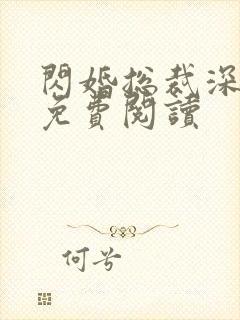 閃婚总裁深
免費閱讀
何兮